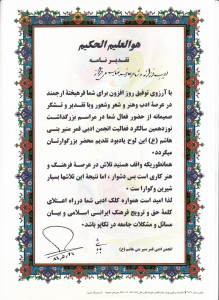 هوالعلیم الحکیم
تقدیر نامه
با آرزوی توفیق روز افزون برای شما فرهیختهٔ ارجمند
در عرصهٔ ادب وهنر و شعر وشعور وبا تقدیر و تشکر
صمیمانه از حضور فعال شما در مراسم بزرگداشت
نوزدهمین سالگرد فعالیت انجمن ادبی قمر منیر بنی
هاشم (ع) این لوح یادبود تقدیم محضر بزرگوارتان
میگردد
همانطوریکه واقف هستید تلاش در عرصهٔ فرهنگ و
هنر کاری است بس دشوار ، اما نتیجهٔ این تلاشها بسیار
شیرین و گوارا ست
لذا امید است همواره کلک ادبی شما درراه اعتلای
کلمهٔ حق و ترویج فرهنگ ایرانی اسلامی و بیان
مسائل و مشکلات جامعه در تکاپو باشد
انجمن ادبی قمر منیر بنی هاشم (ع)